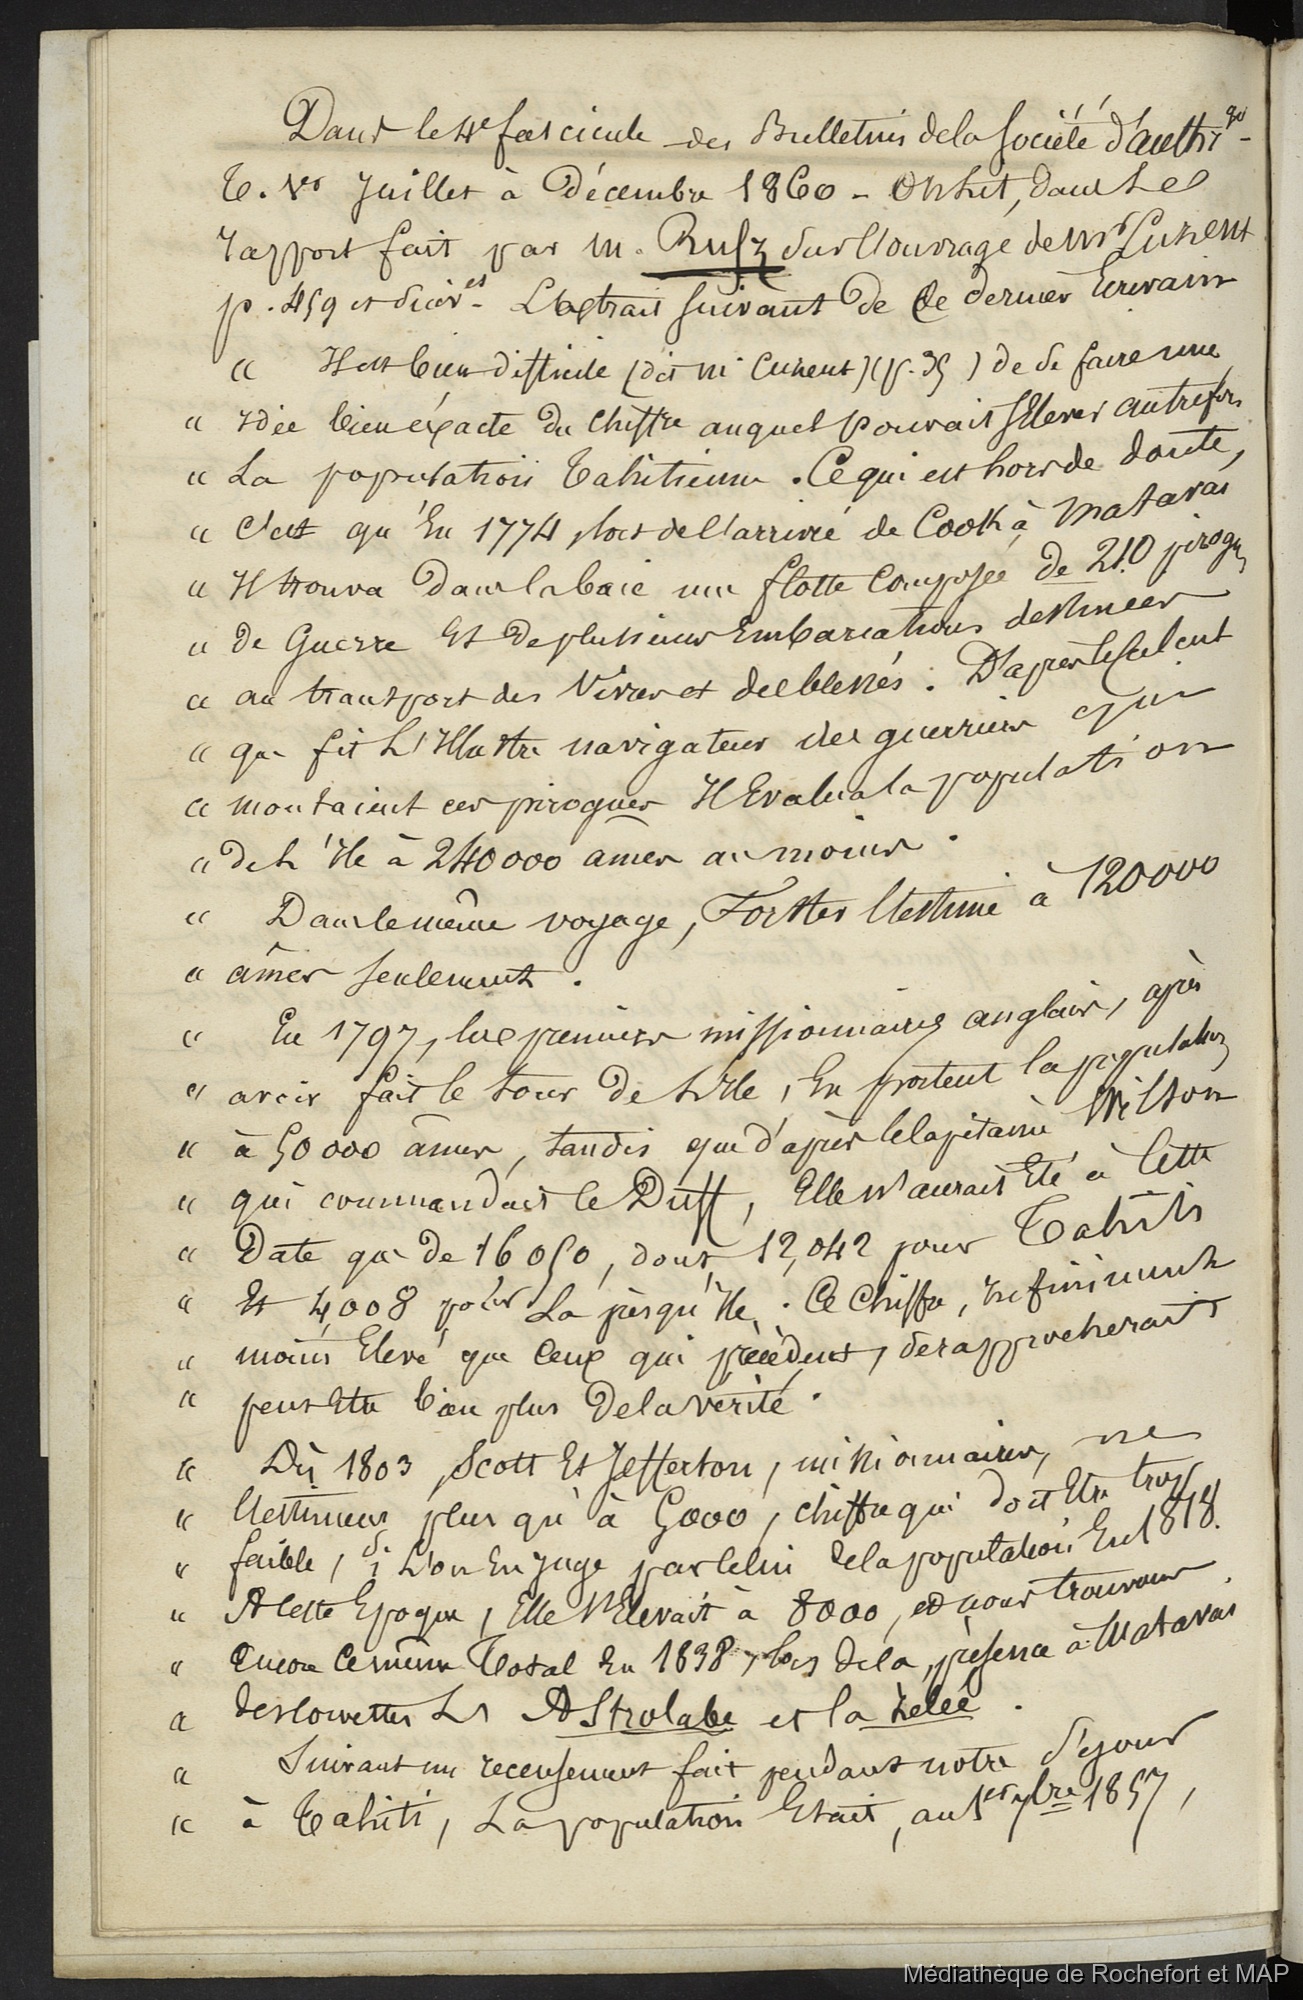 Dans le 4e fascicule des Bulletins de la Société d'anthr go
T. 1er Juillet à Décembre 1860 - on lit, dans le
rapport fait par M. Rufz sur l'ouvrage de Mr Cuzent
p. 459 et suiv.es L'extrait suivant de ce dernier Ecrivain
" Il est bien difficile (dit M. Cuzent) (p. 35) de se faire une
" idée bien éxacte du chiffre auquel pouvait s'Elever autrefois
" La population Tahitienne. Ce qui est hors de doute,
" c'est qu'En 1774, lors de l'arrivé de Cook à Matavai
" Il trouva dans la baie une flotte Composée de 210 pirogu
" de Guerre Et de plusieurs Embarcations destinées
" au transport des Vivres et des blessés. D'après le Calcul
" que fit L'Illustre navigateur des guerriers qui
" montaient ces pirogues Il Evalua la population
" de L'Ile à 240000 âmes au moins.
" Dans le même voyage, Forster l'estime à 120000
" âmes seulement.
" En 1797, les premiers missionnaires anglais, après
" avoir fait le tour de L'Ile, En portent la population
" à 50000 âmes, tandis que d'après le Capitaine Wilson
" qui commandait le Duff, Elle n'aurait Eté à Cette
" Date que de 16050, dont 12,042 pour Tahiti
" Et 4,008 pour La presqu'Ile. Ce Chiffre, infiniment
" moins Elevé que Ceux qui précèdent, se rapprocherait
" peut Etre bien plus de la vérité.
" Dès 1803, Scott Et Jefferson, missionnaires, ne
" l'estiment plus qu'à 5000, chiffre qui doit Etre trop
" faible, si L'on En juge par Celui de la population En 1818.
" A Cette Epoque, Elle s'Elevait à 8000, et nous trouvons
" Encore Ce même Total En 1838, lors de la présence à Matavai
" des Corvettes L'Astrolabe et la Zélée.
" Suivant un recensement fait pendant notre séjour
" à Tahiti, La population Etait, au 1er 7bre 1857,
Médiathèque de Rochefort et MAP